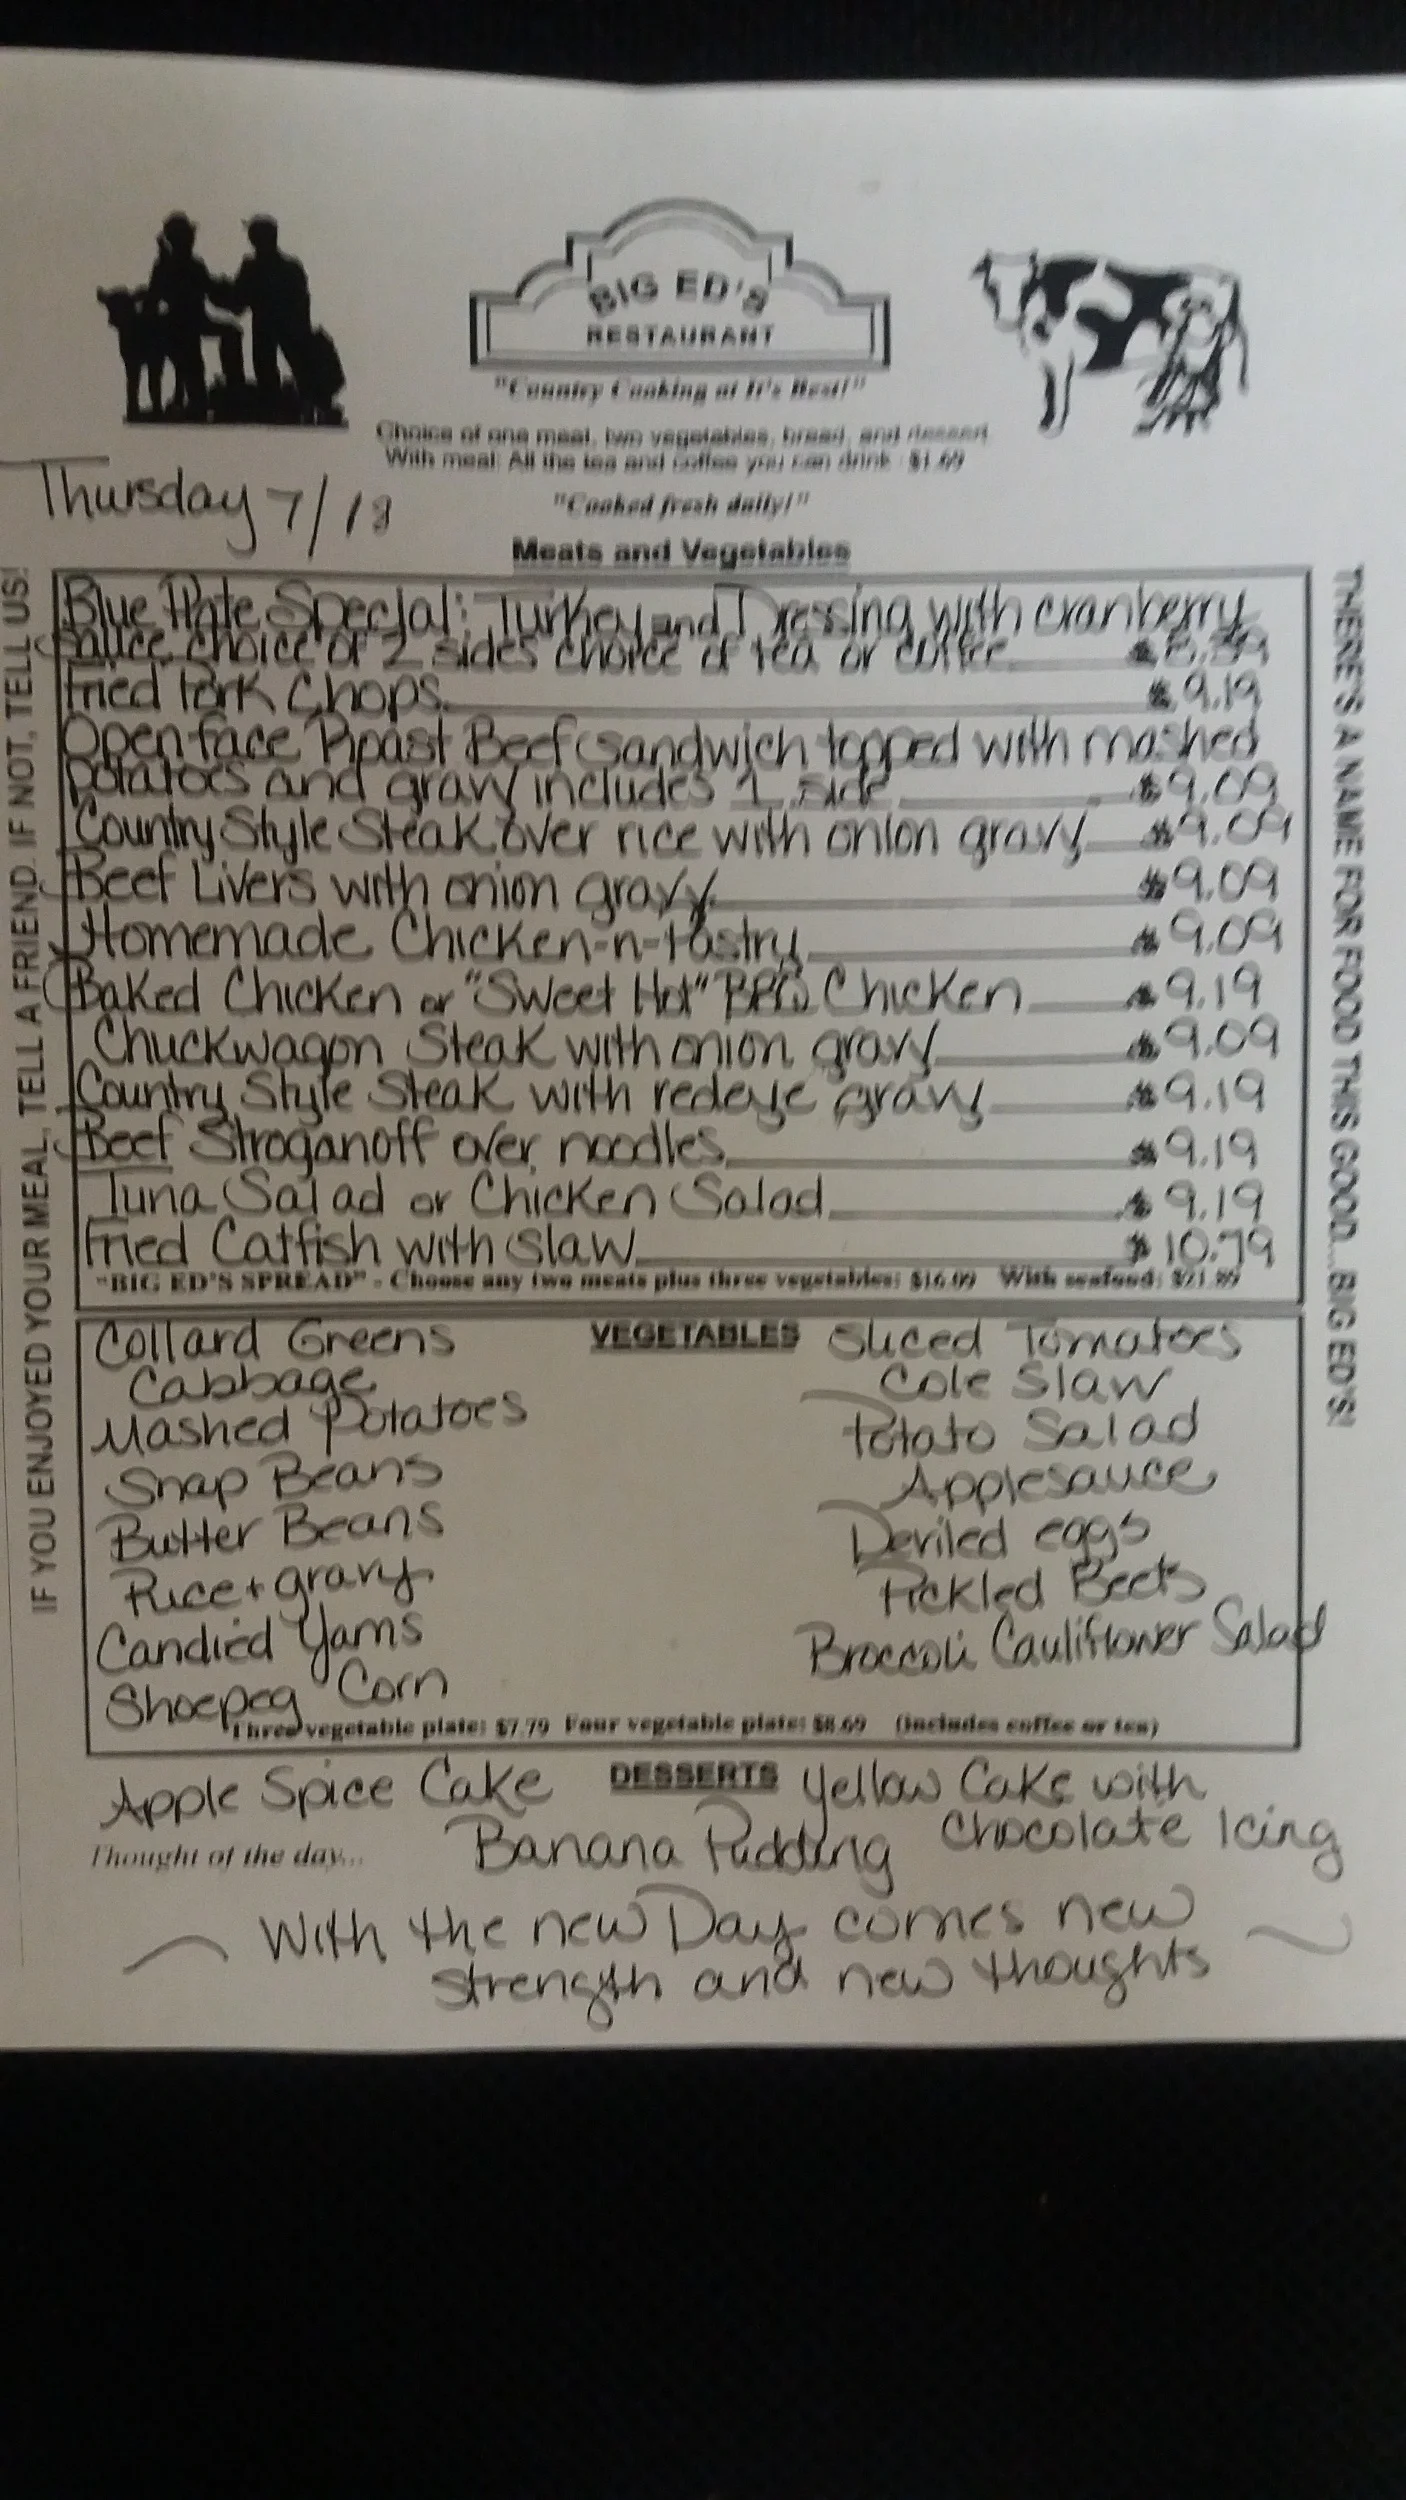 BIG ED'S
RESTAURANT
"Country Cooking at It's Best!"
Choice of one meat, two vegetables, bread, and dessert
With meal: All the tea and coffee you can drink $1.69
Thursday 7/13
"Cooked fresh daily!"
Meats and Vegetables
IF YOU ENJOYED YOUR MEAL, TELL A FRIEND. IF NOT, TELL US!
Blue Plate Special: Turkey and Dressing with cranberry
sauce choice of 2 sides choice of tea or coffee $8.39
Fried Pork Chops $9.19
Open-face Roast Beef sandwich topped with mashed
potatoes and gravy includes 1 side $9.09
Country Style Steak over rice with onion gravy $9.09
Beef Livers with onion gravy $9.09
Homemade Chicken-n-Pastry $9.09
Baked Chicken or "Sweet Hot" BBQ Chicken $9.19
Chuckwagon Steak with onion gravy $9.09
Country Style Steak with redeye gravy $9.19
Beef Stroganoff over noodles $9.19
Tuna Salad or Chicken Salad $9.19
Fried Catfish with slaw $10.79
"BIG ED'S SPREAD" - Choose any two meats plus three vegetables: $16.09 With seafood: $21.89
THERE'S A NAME FOR FOOD THIS GOOD...BIG ED'S!
VEGETABLES
Collard Greens
Cabbage
Mashed Potatoes
Snap Beans
Butter Beans
Rice + gravy
Candied Yams
Shoepeg Corn
Sliced Tomatoes
Cole Slaw
Potato Salad
Applesauce
Deviled eggs
Pickled Beets
Broccoli Cauliflower Salad
Three vegetable plate: $7.79 Four vegetable plate: $8.69 (includes coffee or tea)
DESSERTS
Apple Spice Cake
Banana Pudding
Yellow Cake with
Chocolate Icing
Thought of the day...
With the new Day comes new
strength and new thoughts